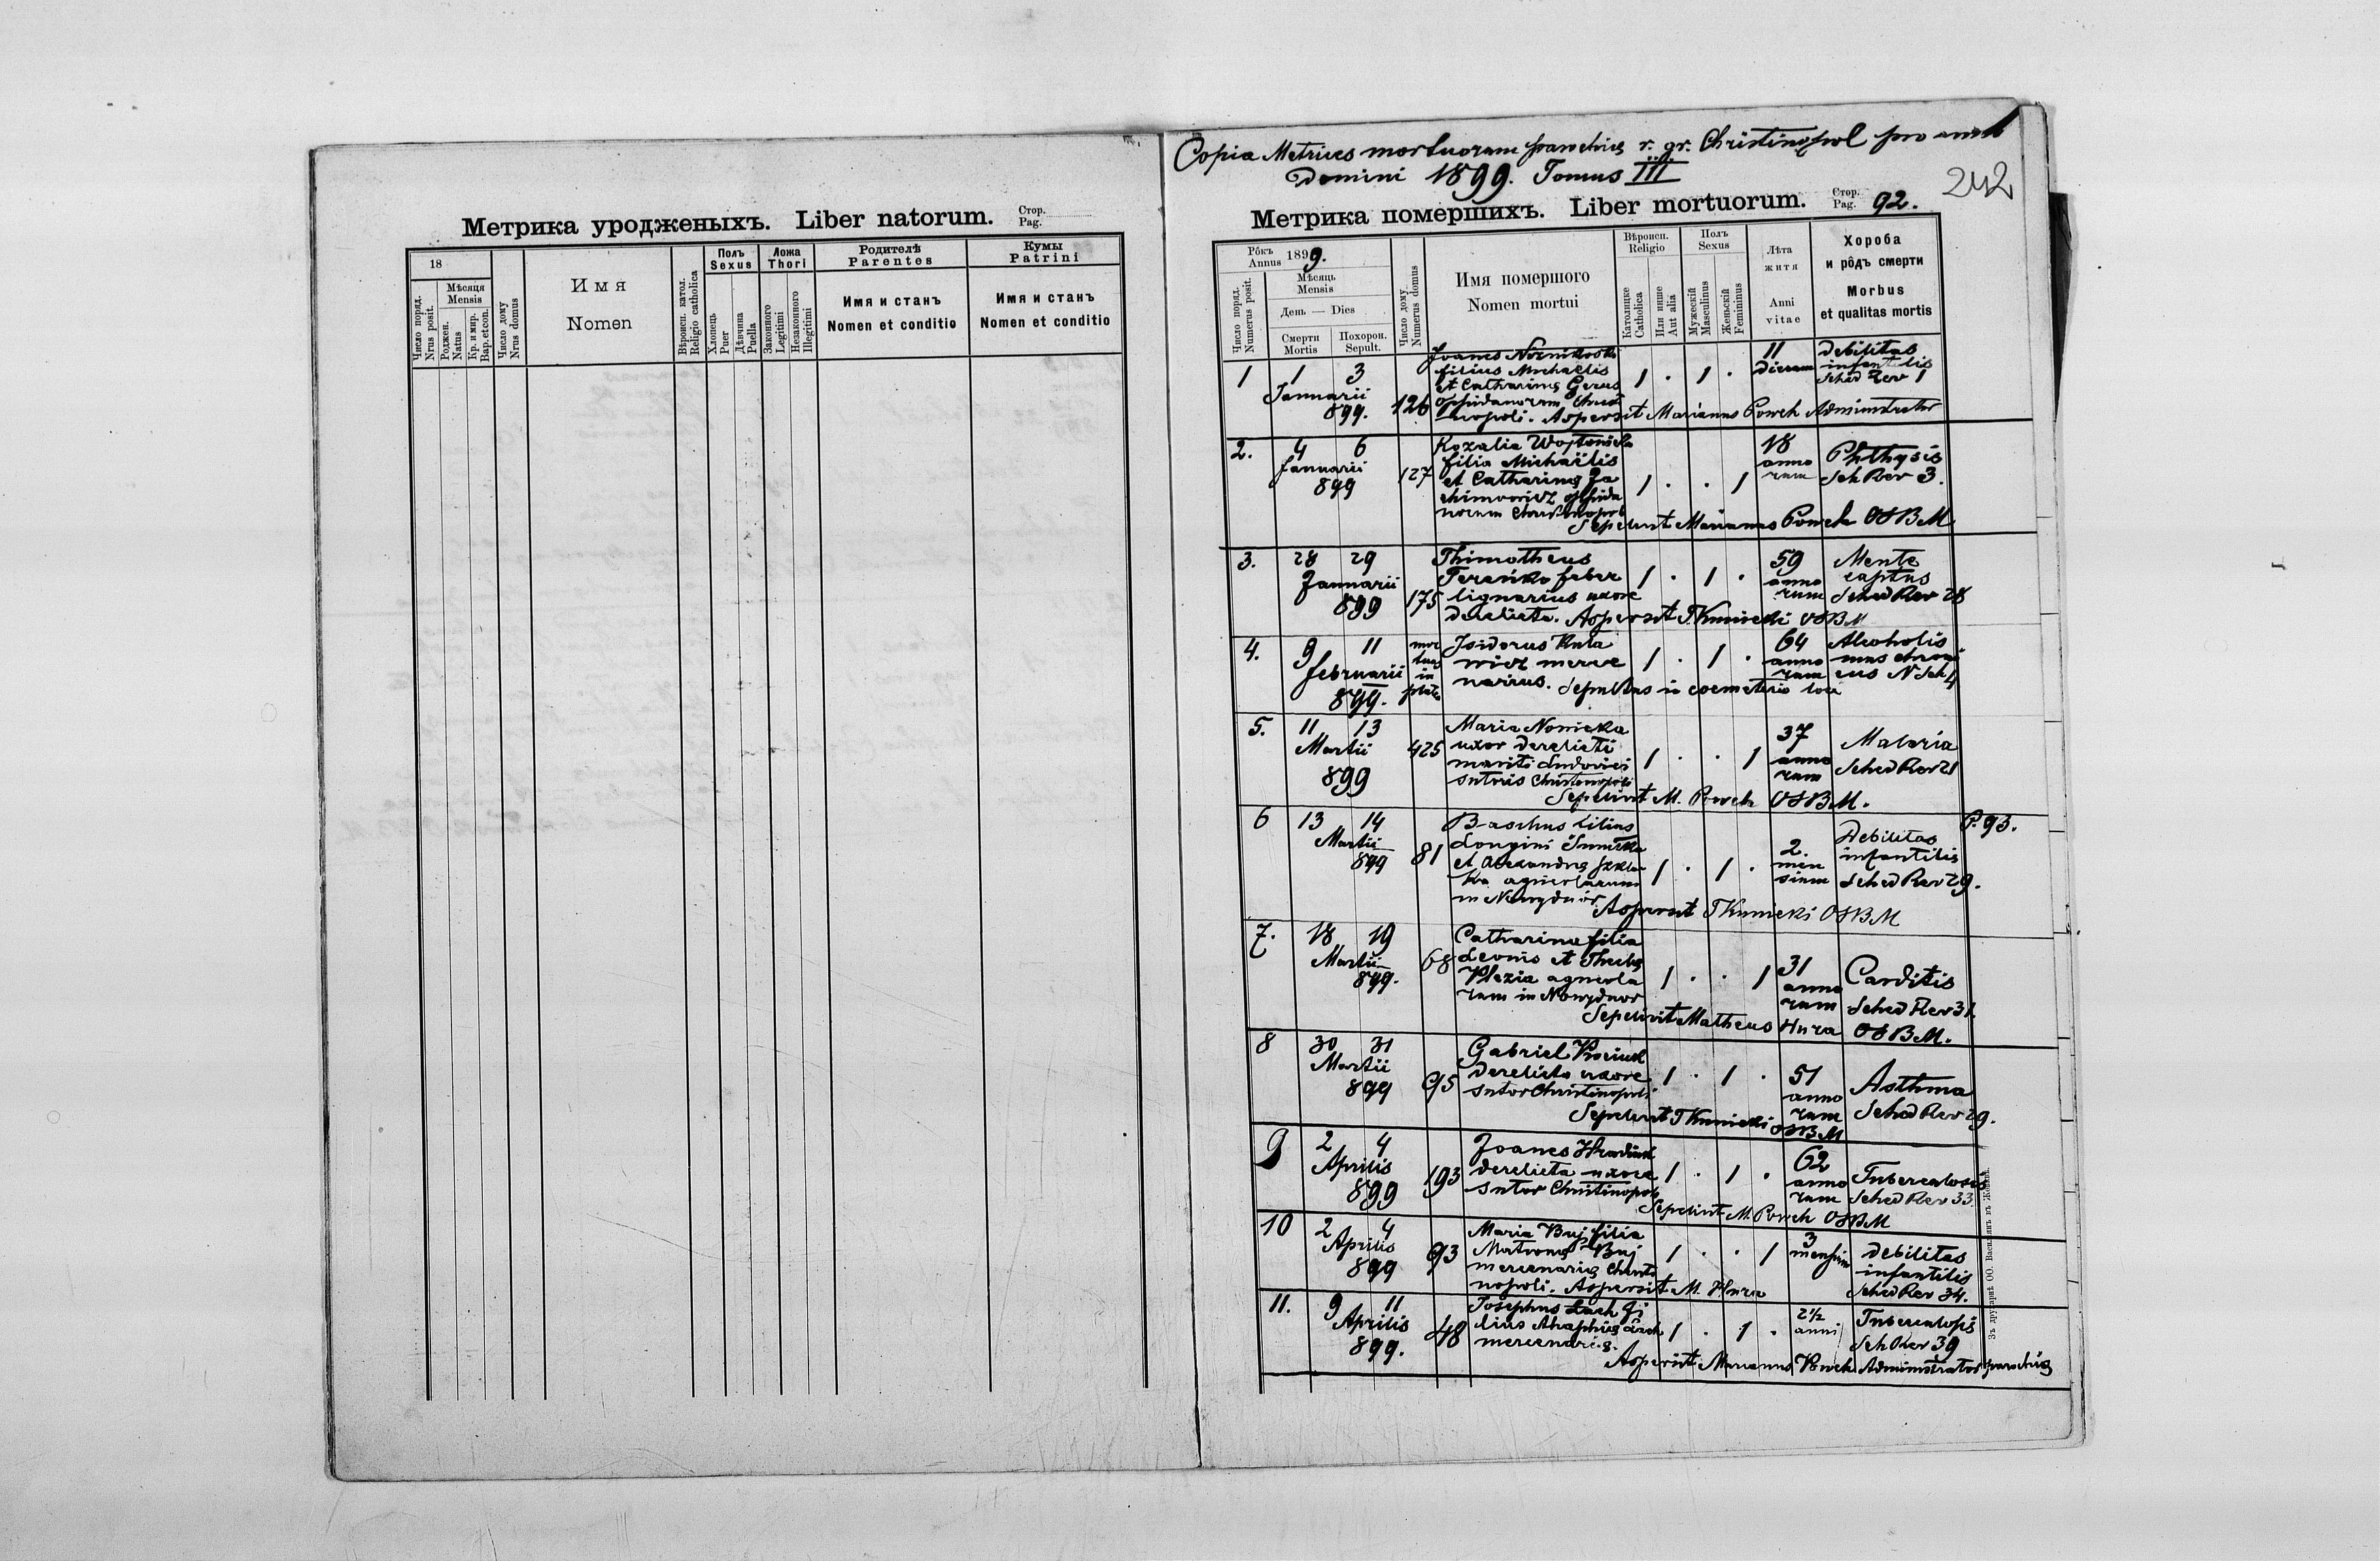 Метрика уродженыхъ. Liber natorum. Стор. Pag.
18
Число поряд. Nrus posit.
Мѣсяця Mensis
Роджен. Natus
Кр. и мир. Bap. et con.
Число дому Nrus domus
Имя
Nomen
Вѣроисп. катол. Religio catholica
Полъ Sexus
Хлопець Puer
Дѣвчина Puella
Ложа Thori
Законного Legitimi
Незаконного Illegitimi
Родителѣ
Parentes
Имя и станъ
Nomen et conditio
Кумы
Patrini
Имя и станъ
Nomen et conditio
Copia Metrices mortuorum parochię r. gr. Christinopol pro anno
Domini 1899. Tomus III
242
Метрика помершихъ. Liber mortuorum. Стор. Pag. 92.
Рôкъ Annus 1899.
Число поряд. Numerus posit.
Мѣсяць Mensis
День — Dies
Смерти Mortis
Похорон. Sepult.
Число дому Numerus domus
Имя помершого
Nomen mortui
Вѣроисп. Religio
Католицке Catholica
Или инше Aut alia
Полъ Sexus
Мужескій Masculinus
Женьскій Feminimus
Лѣта житя
Anni vitae
Хороба
и рôдъ смерти
Morbus
et qualitas mortis
1 1 3 Januarii 899. 126
Joanes
filius Michaëlis
et Catharinę Gerus
oppidanorum Christi
nopoli. Aspersit Marianus Powch Administrator
1 . 1 . 11 Dierum
debilitas
infantilis
Sched Rev 1
2. 4 6 Januarii 899 127
Rozalia
filia Michaëlis
et Catharinę Ja
chimowicz oppida
norum Christinopol
Sepelivit Marianus Powch OSBM
1 . . 1 18 anno rum
Phthysis
Sch Rev 3.
3. 28 29 Januarii 899 175
Thimotheus
Tereńko faber
lignarius uxore
derelicta. Aspersit T Kunicki OSBM
1 . 1 . 59 anno rum
Mente
captus
Sched Rev 28
4. 9 11 Februarii 899. mor tuus in
Isidorus Kula
wicz merce
narius. Sepultus in coemeterio loci
1 . 1 . 64 anno rum
Alcoholis
mus chroni
cus N Sch 4
5. 11 13 Martii 899 425
Maria Nowicka
uxor derelicti
mariti Ludovici
sutoris Christinopoli
Sepelivit M. Powch OSBM.
1 . . 1 37 anno rum
Malaria
Sched Rev 21
P. 93.
6 13 14 Martii 899 81
filius
Longini
et Alexandrę
ka agricolarum
in Nowydwór. Aspersit T Kunicki OSBM
1 . 1 . 2. men sium
Debilitas
infantilis
Sched Rev 29.
7. 18 19 Martii 899. 68
Catharina filia
Leonis et Theclę
agricola
rum in Nowydwor
Sepelivit Matheus Hura OSBM.
1 . . 1 31 anno rum
Carditis
Sched Rev 31.
8 30 31 Martii 899 95
Gabriel
derelicta uxore
sutor Christinopoli
Sepelivit T Kunicki OSBM
1 . 1 . 51 anno rum
Asthma
Sched Rev 29.
9 2 4 Aprilis 899 193
Joanes
derelicta uxore
sutor Christinopoli
Sepelivit M. Powch OSBM
1 . 1 . 62 anno rum
Tuberculosis
Sched Rev 33.
10 2 4 Aprilis 899 93
Maria Buj filia
Matronę Buj
mercenarię Christi
nopoli. Aspersit M. Hura
1 . . 1 3 mensium
debilitas
infantilis
Sched Rev 34.
11. 9 11 Aprilis 899. 48
Josephus Lach fi
lius Lach
mercenarię.
Aspersit Marianus Powch Administrator parochię
1 . 1 . 2½ anni
Tuberculosis
Sch Rev 39
Зъ друкарнѣ ОО. Василіянъ въ Жовквѣ.